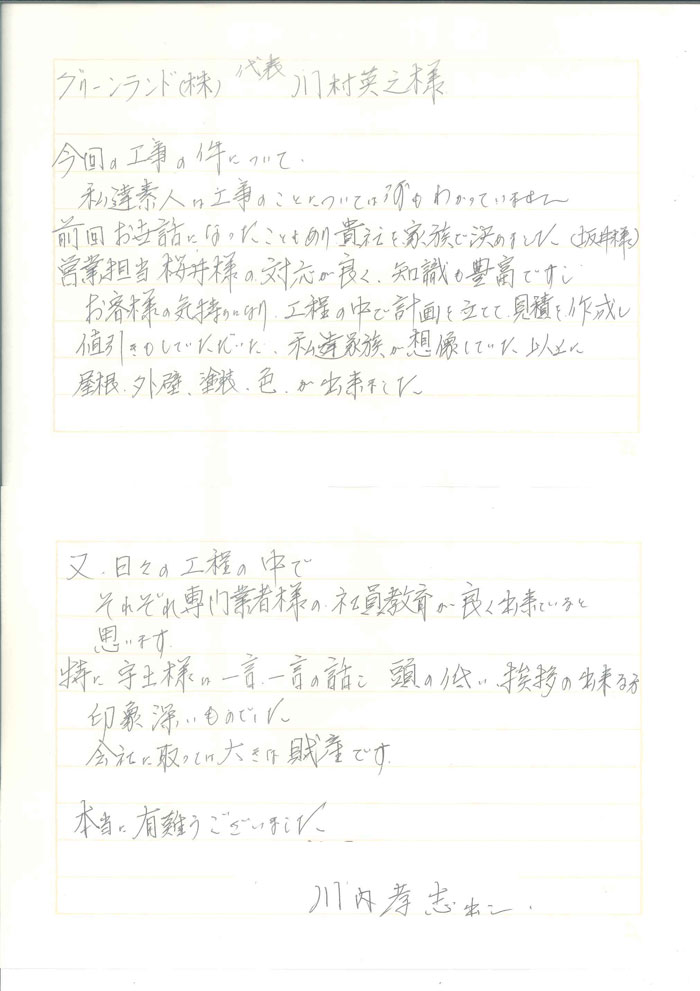 グリーンランド(株) 代表 川村英之様
今回の工事の件について.
私達素人は工事のことについては何もわかっていません
前回お世話になったこともあり貴社を家族で決めました(坂井様)
営業担当 桜井様の対応が良く、知識も豊富ですし
お客様の気持になり、工程の中で計画を立てて、見積を作成し
値引きもしていただいた、私達家族が想像していた以上に
屋根、外壁、塗装、色、が出来ました
又、日々の工程の中で
それぞれ専門業者様の社員教育が良く出来ていると
思います
特に宇土様は一言、一言の話し 頭の低い、挨拶の出来る方
印象深いものでした
会社に取っては大きな財産です.
本当に有難うございました
川内孝志